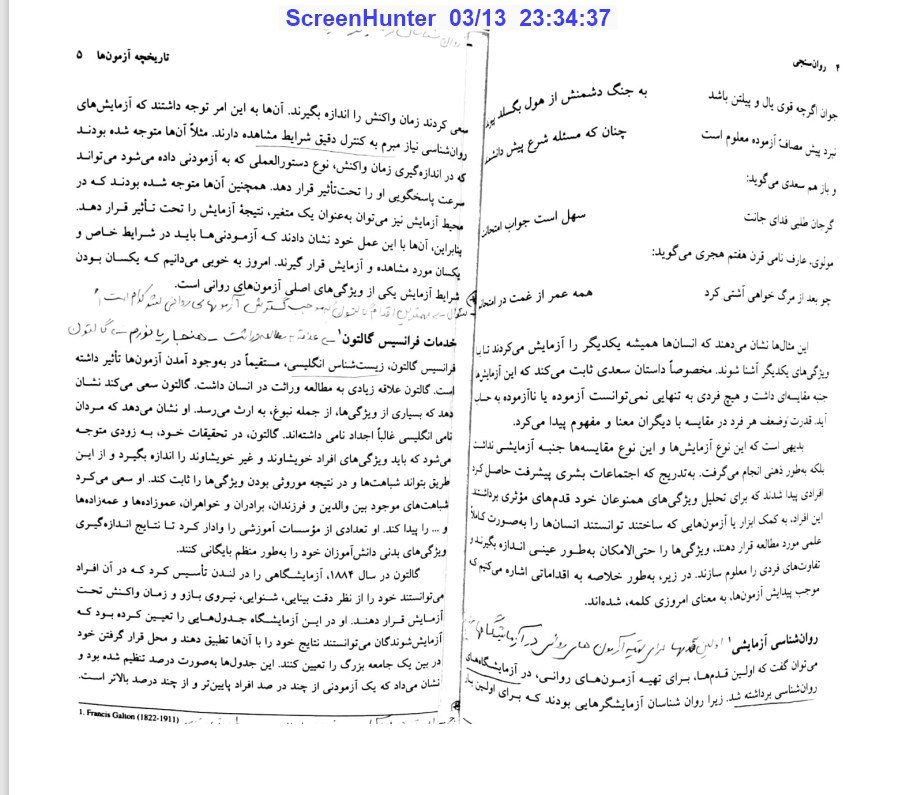 ScreenHunter 03/13 23:34:37
۴ روان‌سنجی
جوان اگرچه قوی یال و پیلتن باشد
به جنگ دشمنش از هول بگسلد
نبرد پیش مصاف آزموده معلوم است
چنان که مسئله شرع پیش
و باز هم سعدی می‌گوید:
گرجان طلبی فدای جانت
سهل است جواب امتحانت
مولوی، عارف نامی قرن هفتم هجری می‌گوید:
چو بعد از مرگ خواهی آشتی کرد
همه عمر از غمت در
این مثال‌ها نشان می‌دهند که انسان‌ها همیشه یکدیگر را آزمایش می‌کردند تا با
ویژگی‌های یکدیگر آشنا شوند. مخصوصاً داستان سعدی ثابت می‌کند که این آزمایش‌ها
جنبه مقایسه‌ای داشت و هیچ فردی به تنهایی نمی‌توانست آزموده یا ناآزموده به حساب
آید. قدرت و ضعف هر فرد در مقایسه با دیگران معنا و مفهوم پیدا می‌کرد.
بدیهی است که این نوع آزمایش‌ها و این نوع مقایسه‌ها جنبه آزمایشی نداشت
بلکه به‌طور ذهنی انجام می‌گرفت. به‌تدریج که اجتماعات بشری پیشرفت حاصل کرد
افرادی پیدا شدند که برای تحلیل ویژگی‌های همنوعان خود قدم‌های مؤثری برداشتند
این افراد، به کمک ابزار یا آزمون‌هایی که ساختند توانستند انسان‌ها را به‌صورت کاملاً
علمی مورد مطالعه قرار دهند، ویژگی‌ها را حتی‌الامکان به‌طور عینی اندازه بگیرند و
تفاوت‌های فردی را معلوم سازند. در زیر، به‌طور خلاصه به اقداماتی اشاره می‌کنیم که
موجب پیدایش آزمون‌ها، به معنای امروزی کلمه، شده‌اند.
روان‌شناسی آزمایشی اولین قدمها برای تهیه آزمون های روانی در آزمایشگاهها
می‌توان گفت که اولین قدم‌ها، برای تهیه آزمون‌های روانی، در آزمایشگاه‌های
روان‌شناسی برداشته شد. زیرا روان شناسان آزمایشگرهایی بودند که برای اولین بار
تاریخچه آزمون‌ها ۵
سعی کردند زمان واکنش را اندازه بگیرند. آن‌ها به این امر توجه داشتند که آزمایش‌های
روان‌شناسی نیاز مبرم به کنترل دقیق شرایط مشاهده دارند. مثلاً آن‌ها متوجه شده بودند
که در اندازه‌گیری زمان واکنش، نوع دستورالعملی که به آزمودنی داده می‌شود می‌تواند
سرعت پاسخگویی او را تحت‌تأثیر قرار دهد. همچنین آن‌ها متوجه شده بودند که در
محیط آزمایش نیز می‌توان به‌عنوان یک متغیر، نتیجهٔ آزمایش را تحت تأثیر قرار دهد.
بنابراین، آن‌ها با این عمل خود نشان دادند که آزمودنی‌ها باید در شرایط خاص و
یکسان مورد مشاهده و آزمایش قرار گیرند. امروز به خوبی می‌دانیم که یکسان بودن
شرایط آزمایش یکی از ویژگی‌های اصلی آزمون‌های روانی است.
گالتون که موجب گسترش آزمونهای روانی شد کدام است
خدمات فرانسیس گالتون۱ علاقه به مطالعه وراثت هنجار یا نورم گالتون
فرانسیس گالتون، زیست‌شناس انگلیسی، مستقیماً در به‌وجود آمدن آزمون‌ها تأثیر داشته
است. گالتون علاقه زیادی به مطالعه وراثت در انسان داشت. گالتون سعی می‌کند نشان
دهد که بسیاری از ویژگی‌ها، از جمله نبوغ، به ارث می‌رسد. او نشان می‌دهد که مردان
نامی انگلیسی غالباً اجداد نامی داشته‌اند. گالتون، در تحقیقات خود، به زودی متوجه
می‌شود که باید ویژگی‌های افراد خویشاوند و غیر خویشاوند را اندازه بگیرد و از این
طریق بتواند شباهت‌ها و در نتیجه موروثی بودن ویژگی‌ها را ثابت کند. او سعی می‌کرد
شباهت‌های موجود بین والدین و فرزندان، برادران و خواهران، عموزاده‌ها و عمه‌زاده‌ها
و ... را پیدا کند. او تعدادی از مؤسسات آموزشی را وادار کرد تا نتایج اندازه‌گیری
ویژگی‌های بدنی دانش‌آموزان خود را به‌طور منظم بایگانی کنند.
گالتون در سال ۱۸۸۴، آزمایشگاهی را در لندن تأسیس کرد که در آن افراد
می‌توانستند خود را از نظر دقت بینایی، شنوایی، نیروی بازو و زمان واکنش تحت
آزمایش قرار دهند. او در این آزمایشگاه جدول‌هایی را تعیین کرده بود که
آزمایش‌شوندگان می‌توانستند نتایج خود را با آن‌ها تطبیق دهند و محل قرار گرفتن خود
در بین یک جامعه بزرگ را تعیین کنند. این جدول‌ها به‌صورت درصد تنظیم شده بود و
نشان می‌داد که یک آزمودنی از چند در صد افراد پایین‌تر و از چند درصد بالاتر است.
1. Francis Galton (1822-1911)